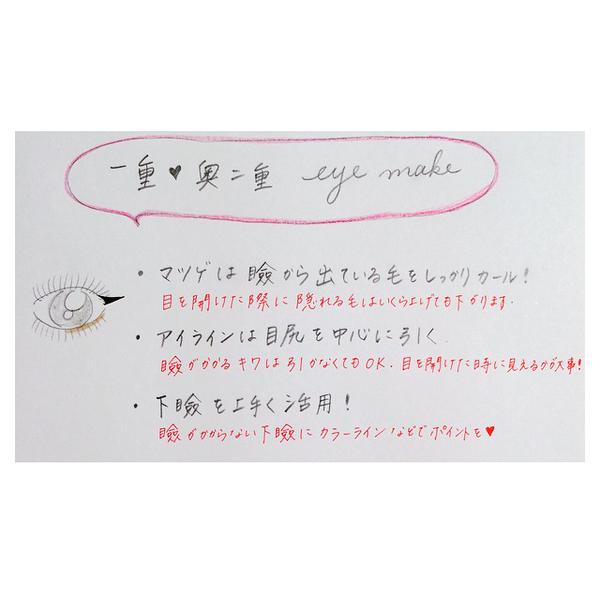 一重♥奥二重 eye make
・マツゲは瞼から出ている毛をしっかりカール!
目を開けた際に隠れる毛はいくら上げても下がります.
・アイラインは目尻を中心に引く.
瞼がかかるキワは引かなくてもOK.目を開けた時に見えるかが大事!
・下瞼を上手く活用!
瞼がかからない下瞼にカラーラインなどでポイントを♥